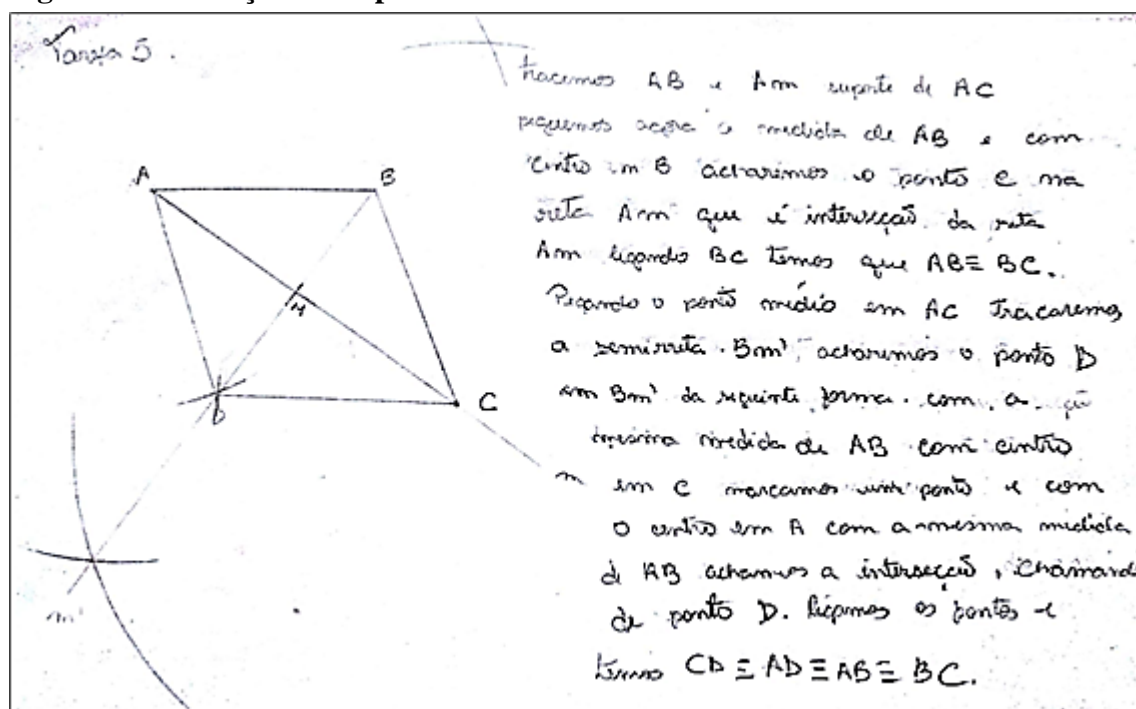 Tarefa 5.
tracemos AB e Am suporte de AC
peguemos agora a medida de AB e com
centro em B acharemos o ponto C na
reta Am que é interseção da reta
Am ligando BC temos que AB≡BC.
Pegando o ponto médio em AC Traçaremos
a semirreta Bm', acharemos o ponto D
em Bm' da seguinte forma. com a
mesma medida de AB com centro
em C marcamos um ponto e com
o centro em A com a mesma medida
de AB achamos a interseccão, chamando
de ponto D. ligamos os pontos e
temos CD≡AD≡AB≡BC.
A
B
M
D
C
m
m'